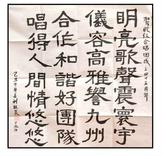 明亮歌聲震寰宇
儀容高雅譽九州
合作和諧好團隊
唱得人間情悠悠